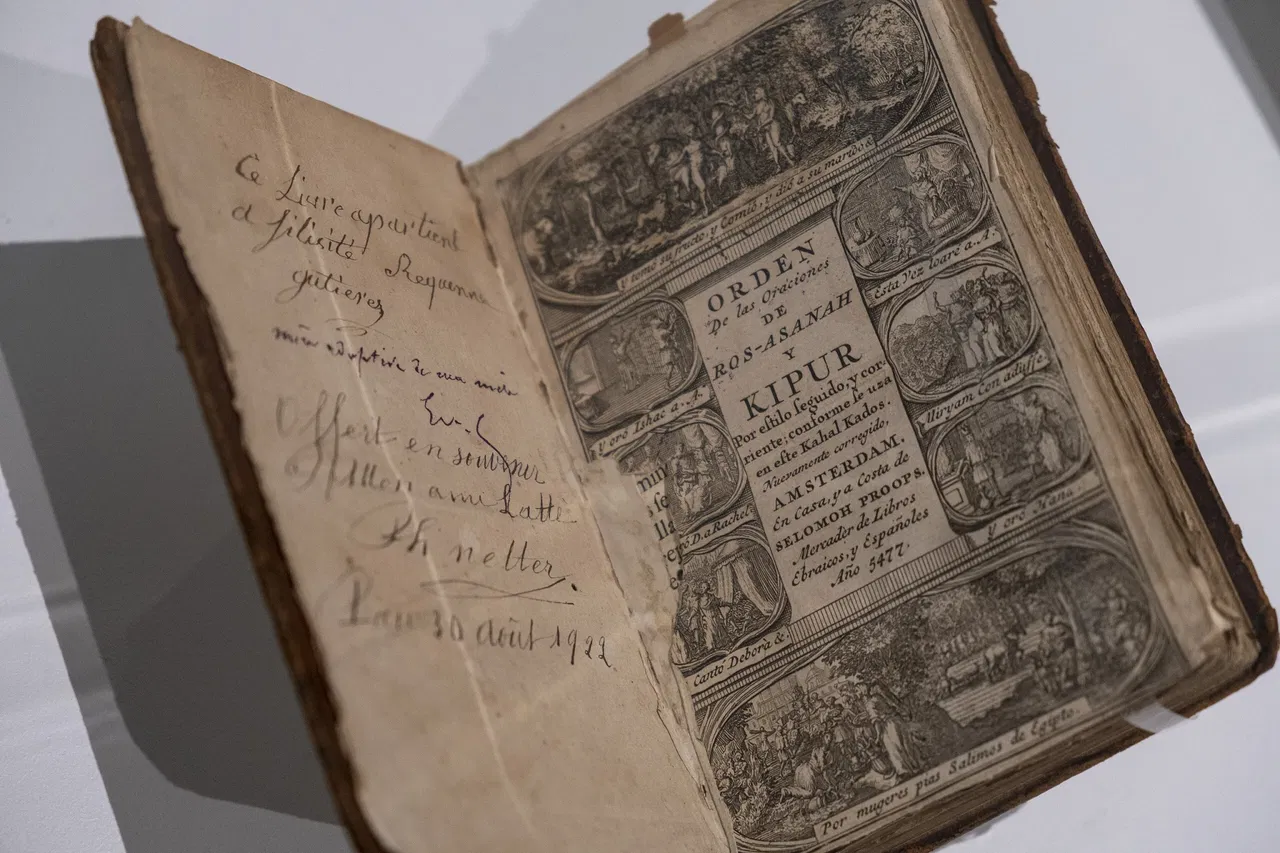 Ce Livre apartient
a filisité Requenne
gutieres
mère adoptive de ma mère
Offert en souvenir
a mon ami Latte
Ph netter.
Pau 30 août 1922.
y tomo su fructo, y Comió, y dió a su marido &
y oró Ishac a. A.
D. a Rachel
Cantó Debora &.
ORDEN
De las Oraciones
DE
ROS-ASANAH
Y
KIPUR
Por estilo seguido, y cor-
riente; conforme se uza
en este Kahal Kados.
Nuevamente corregido,
AMSTERDAM.
En Casa, y a Costa de
SELOMOH PROOPS.
Mercader de Libros
Ebraicos, y Españoles
Año 5477.
Esta Vez loare a. A.
Miryam Con aduffe.
y oró Hana
Por mugeres pias Salimos de Egipto.